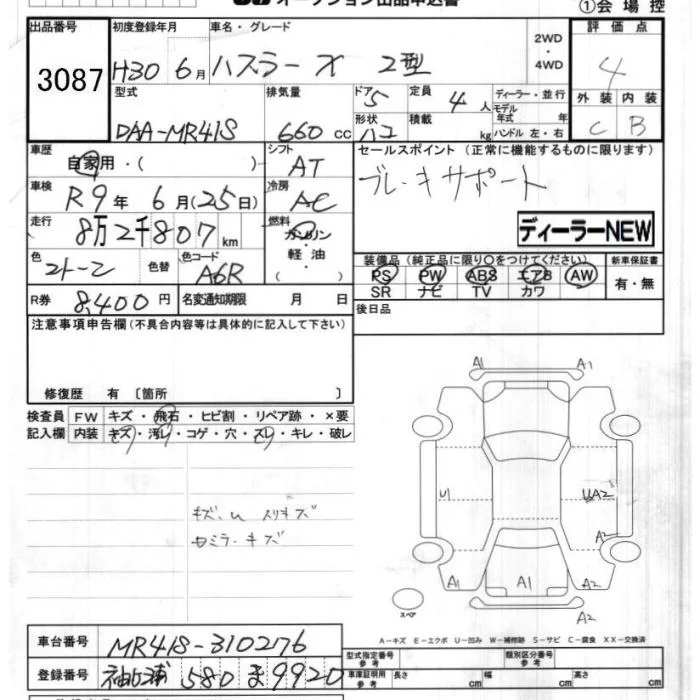 オークション出品申込書
①会場控
出品番号 3087
初度登録年月 H30 6月
車名・グレード ハスラー X 2型
2WD・4WD
評価点 4
外装 C 内装 B
型式 DAA-MR41S
排気量 660 cc
ドア 5
形状 ハコ
定員 4 人
積載 kg
ディーラー・並行
モデル年式 年
ハンドル 左・右
車歴 自家用・( )
シフト AT
セールスポイント (正常に機能するものに限ります)
ブレーキサポート
ディーラーNEW
車検 R9年 6月(25日)
冷房 AC
走行 8万2千807km
燃料 ガソリン 軽油・( )
色 2トーン 色替
色コード A6R
装備品 (純正品に限り○をつけてください)
PS PW ABS エアB AW
SR ナビ TV カワ
新車保証書 有・無
R券 8,400円
名変通知期限 月 日
後日品
注意事項申告欄(不具合内容等は具体的に記入して下さい)
修復歴 有 〔箇所 〕
検査員記入欄
FW キズ・飛石・ヒビ割・リペア跡・×要
内装 キズ・汚レ・コゲ・穴・スレ・キレ・破レ
キズ.U スリキズ
A1 A1
U1 UA2
A2
A1 A1 A2
A2
スペア
A-キズ E-エクボ U-凹み W-補修跡 S-サビ C-腐食 XX-交換済
車台番号 MR41S-310276
登録番号 580 ま 9920
型式指定番号 参考
類別区分番号 参考
車庫証明用参考 長さ cm 幅 cm 高さ cm